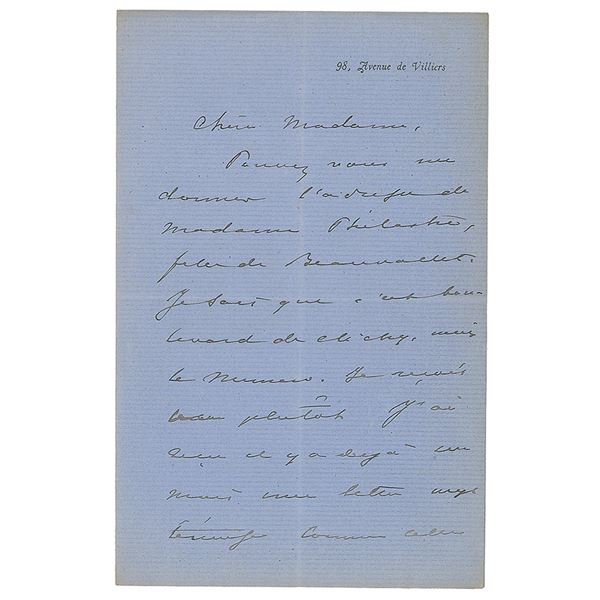 98, Avenue de Villiers
Chère Madame,
Pouvez vous me
donner l'adresse de
Madame Philastre,
fille de Beauvallet.
Je sais que c'est bou-
levard de clichy, mais
le numero. Je
plutôt J'ai
reçu il y a dejà un
mois une lettre mys
térieuse comme